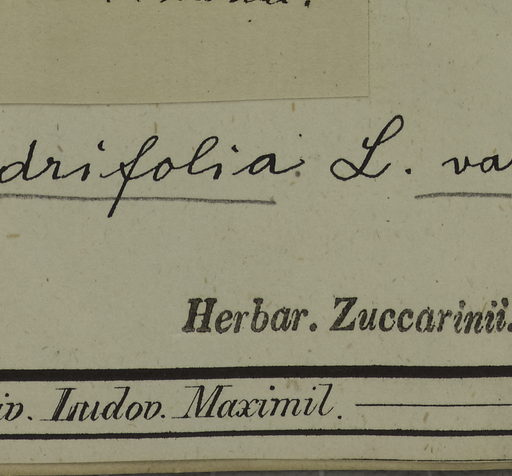 drifolia L. va
Herbar. Zuccarinii.
iv. Ludov. Maximil.